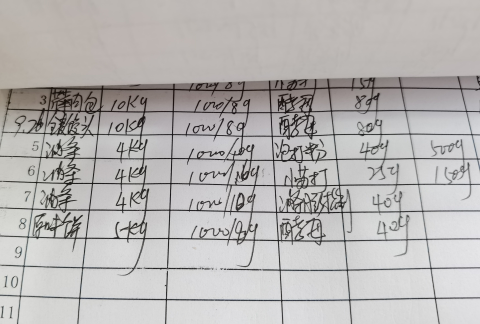 1000/8g 15g
3 肉包 10Kg 1000/8g 酵母 80g
9.26 馒头 10Kg 1000/8g 酵母 80g
5 油条 4Kg 1000/10g 泡打粉 40g 500g
6 油条 4Kg 1000/10g 小苏打 25g 150g
7 油条 4Kg 1000/10g 40g
8 饼 5Kg 1000/8g 酵母 40g
9
10
11